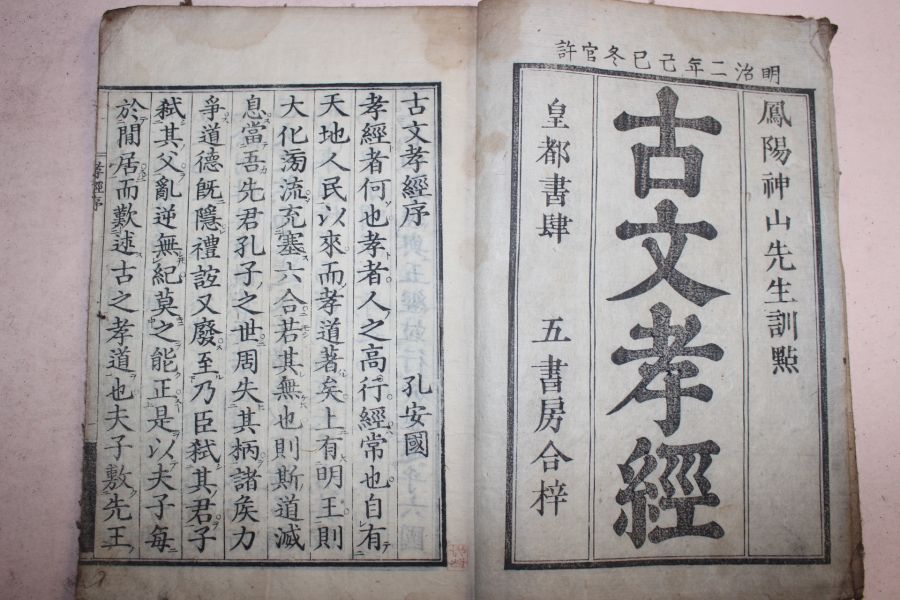 明治二年己巳冬官許
鳳陽神山先生訓點
古文孝經
皇都書肆 五書房合梓
古文孝經序 孔安國
孝經者何也孝者人之高行經常也自有
天地人民以來而孝道著矣上有明王則
大化滂流充塞六合若其無也則斯道滅
息當吾先君孔子之世周失其柄諸侯力
爭道德既隱禮誼又廢至乃臣弑其君子
弑其父亂逆無紀莫之能正是以夫子每
於閒居而歎述古之孝道也夫子敷先王
孝經序